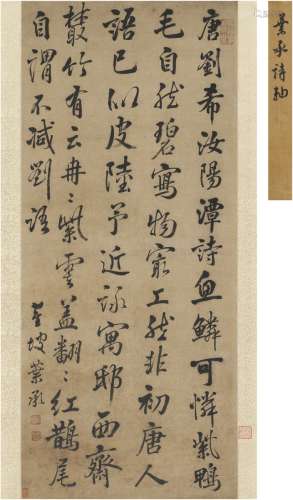 唐劉希汝陽潭詩魚鱗可憐紫鴨
毛自然碧寫物最工然非初唐人
語已似皮陸予近詠寓邸西齋
叢竹有云冉〻紫雲蓋翩〻紅鵲尾
自謂不減劉語
坡葉承
葉承詩軸